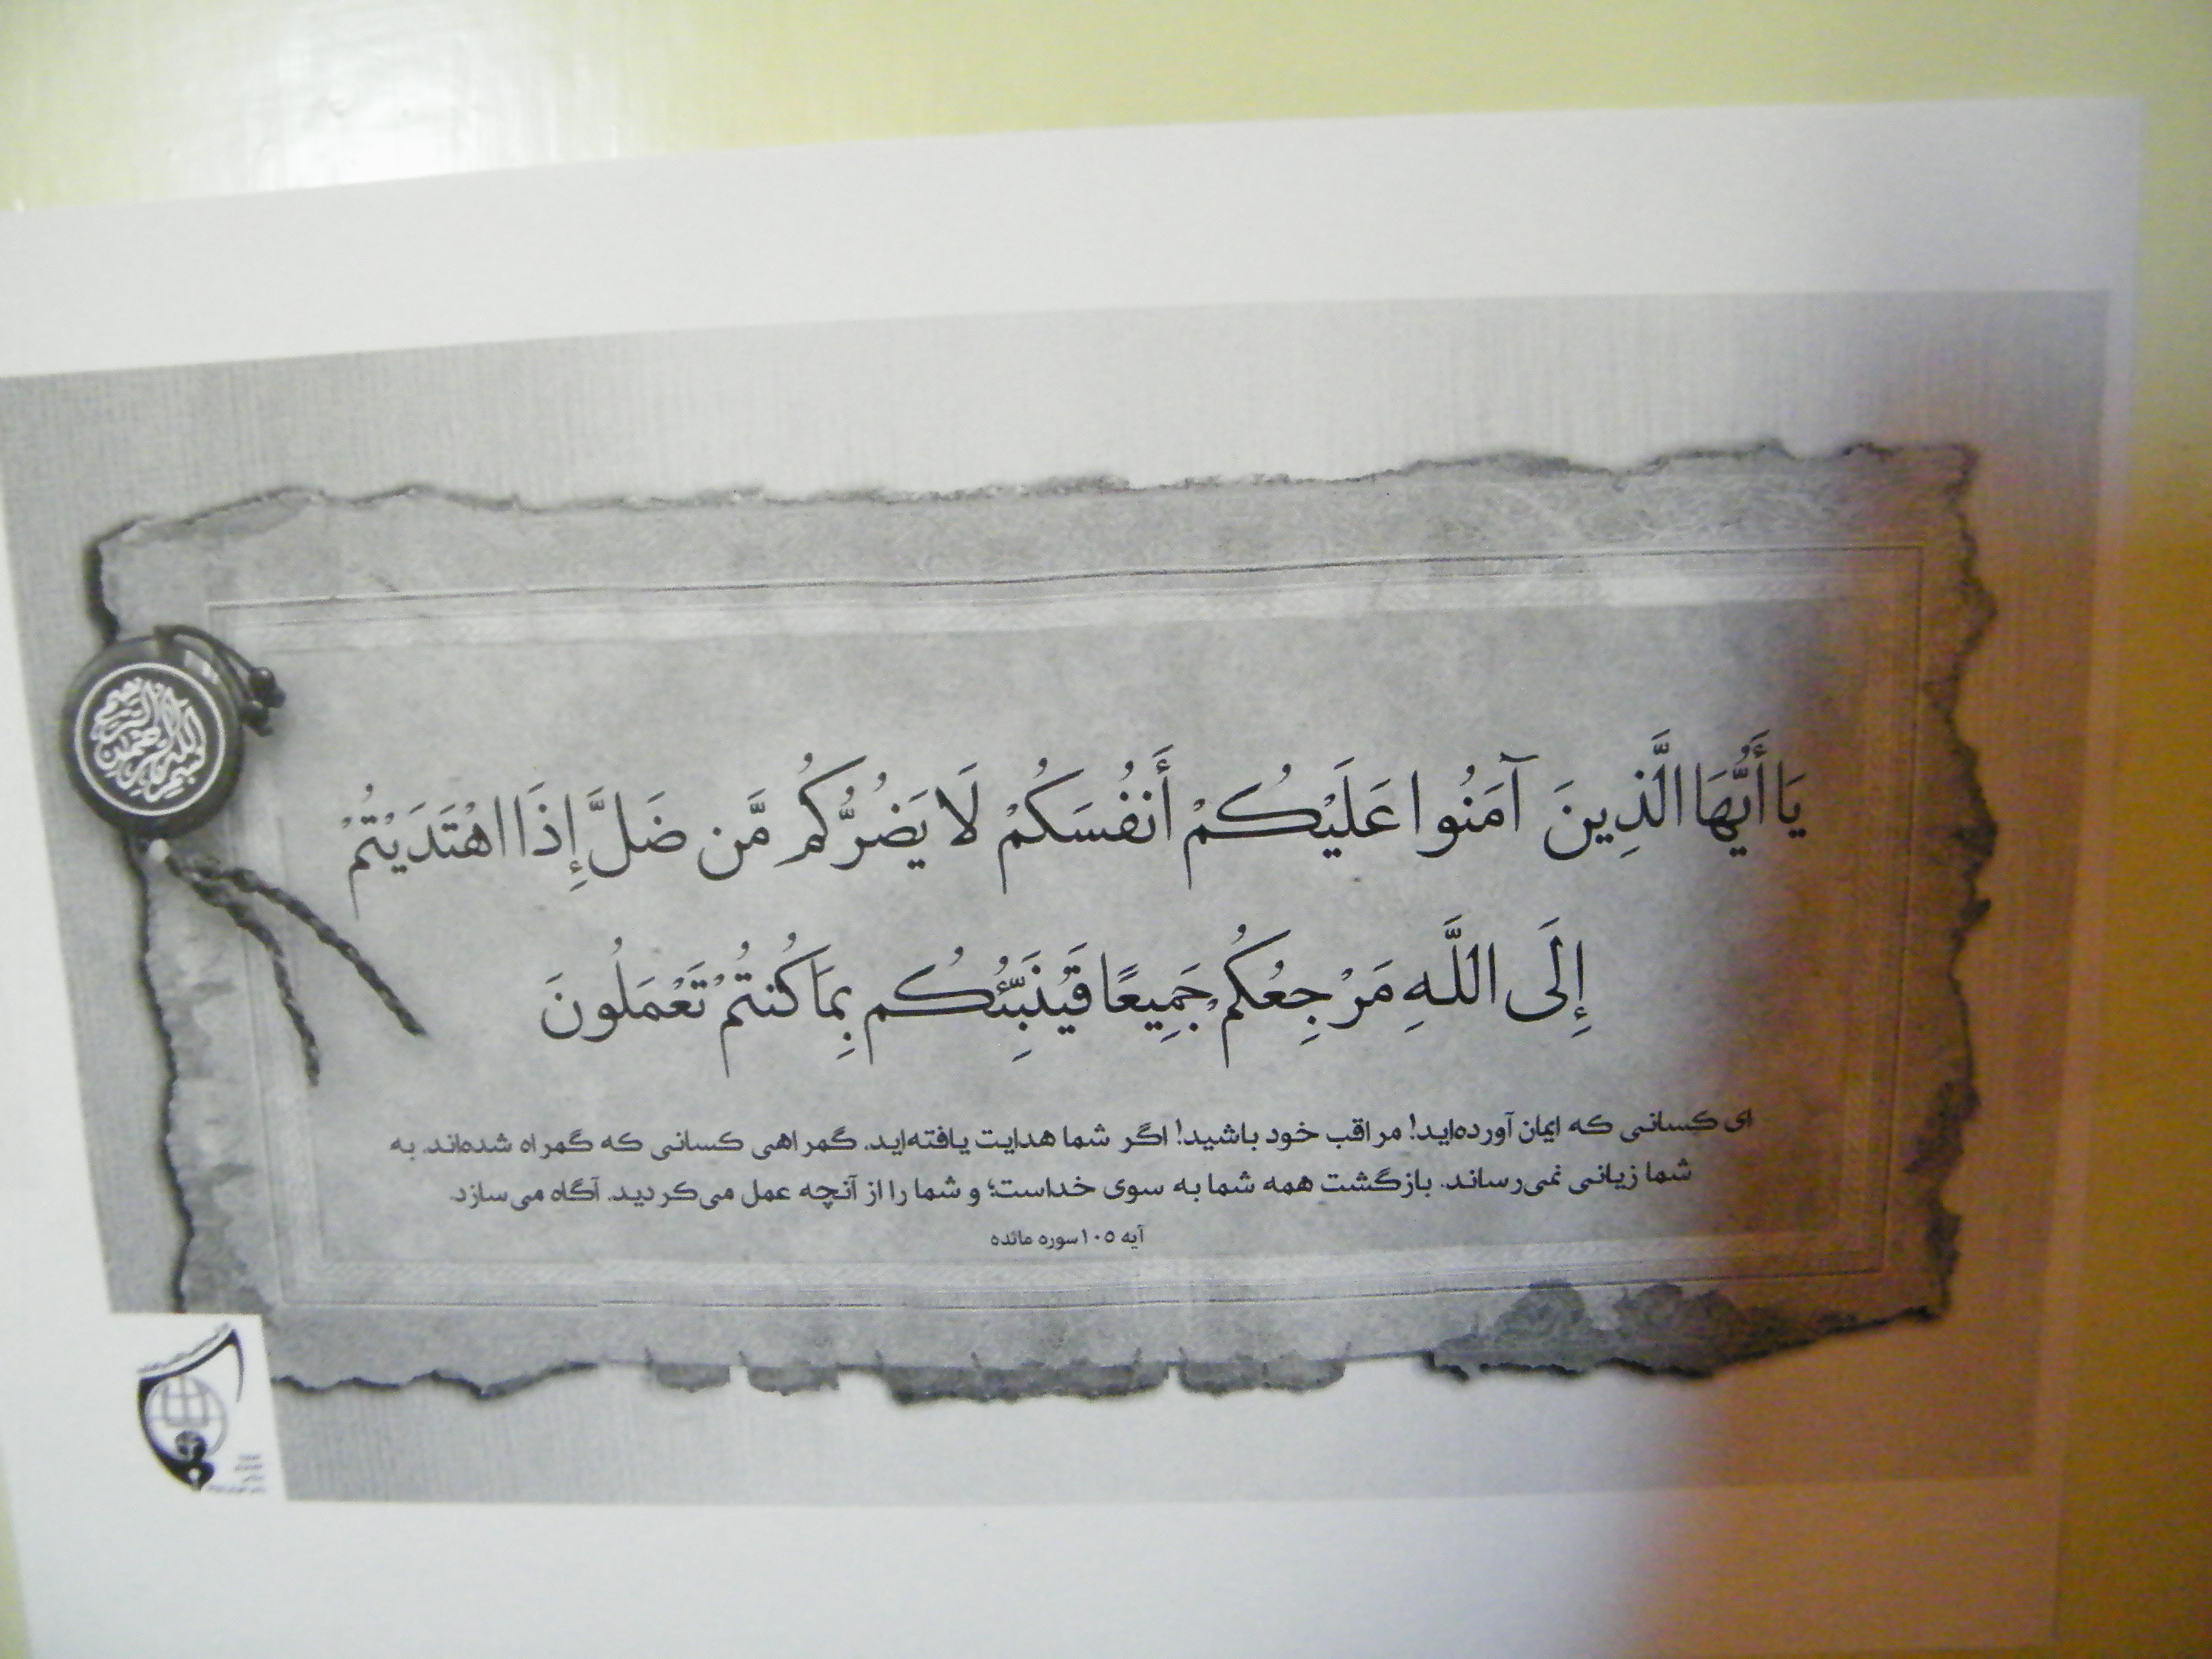 يَا أَيُّهَا الَّذِينَ آمَنُوا عَلَيْكُمْ أَنفُسَكُمْ لَا يَضُرُّكُم مَّن ضَلَّ إِذَا اهْتَدَيْتُمْ
إِلَى اللَّهِ مَرْجِعُكُمْ جَمِيعًا فَيُنَبِّئُكُم بِمَا كُنتُمْ تَعْمَلُونَ
ای کسانی که ایمان آورده‌اید! مراقب خود باشید! اگر شما هدایت یافته‌اید، گمراهی کسانی که گمراه شده‌اند، به
شما زیانی نمی‌رساند. بازگشت همه شما به سوی خداست؛ و شما را از آنچه عمل می‌کردید، آگاه می‌سازد.
آیه ۱۰۵ سوره مائده
بسم الله الرحمن الرحیم